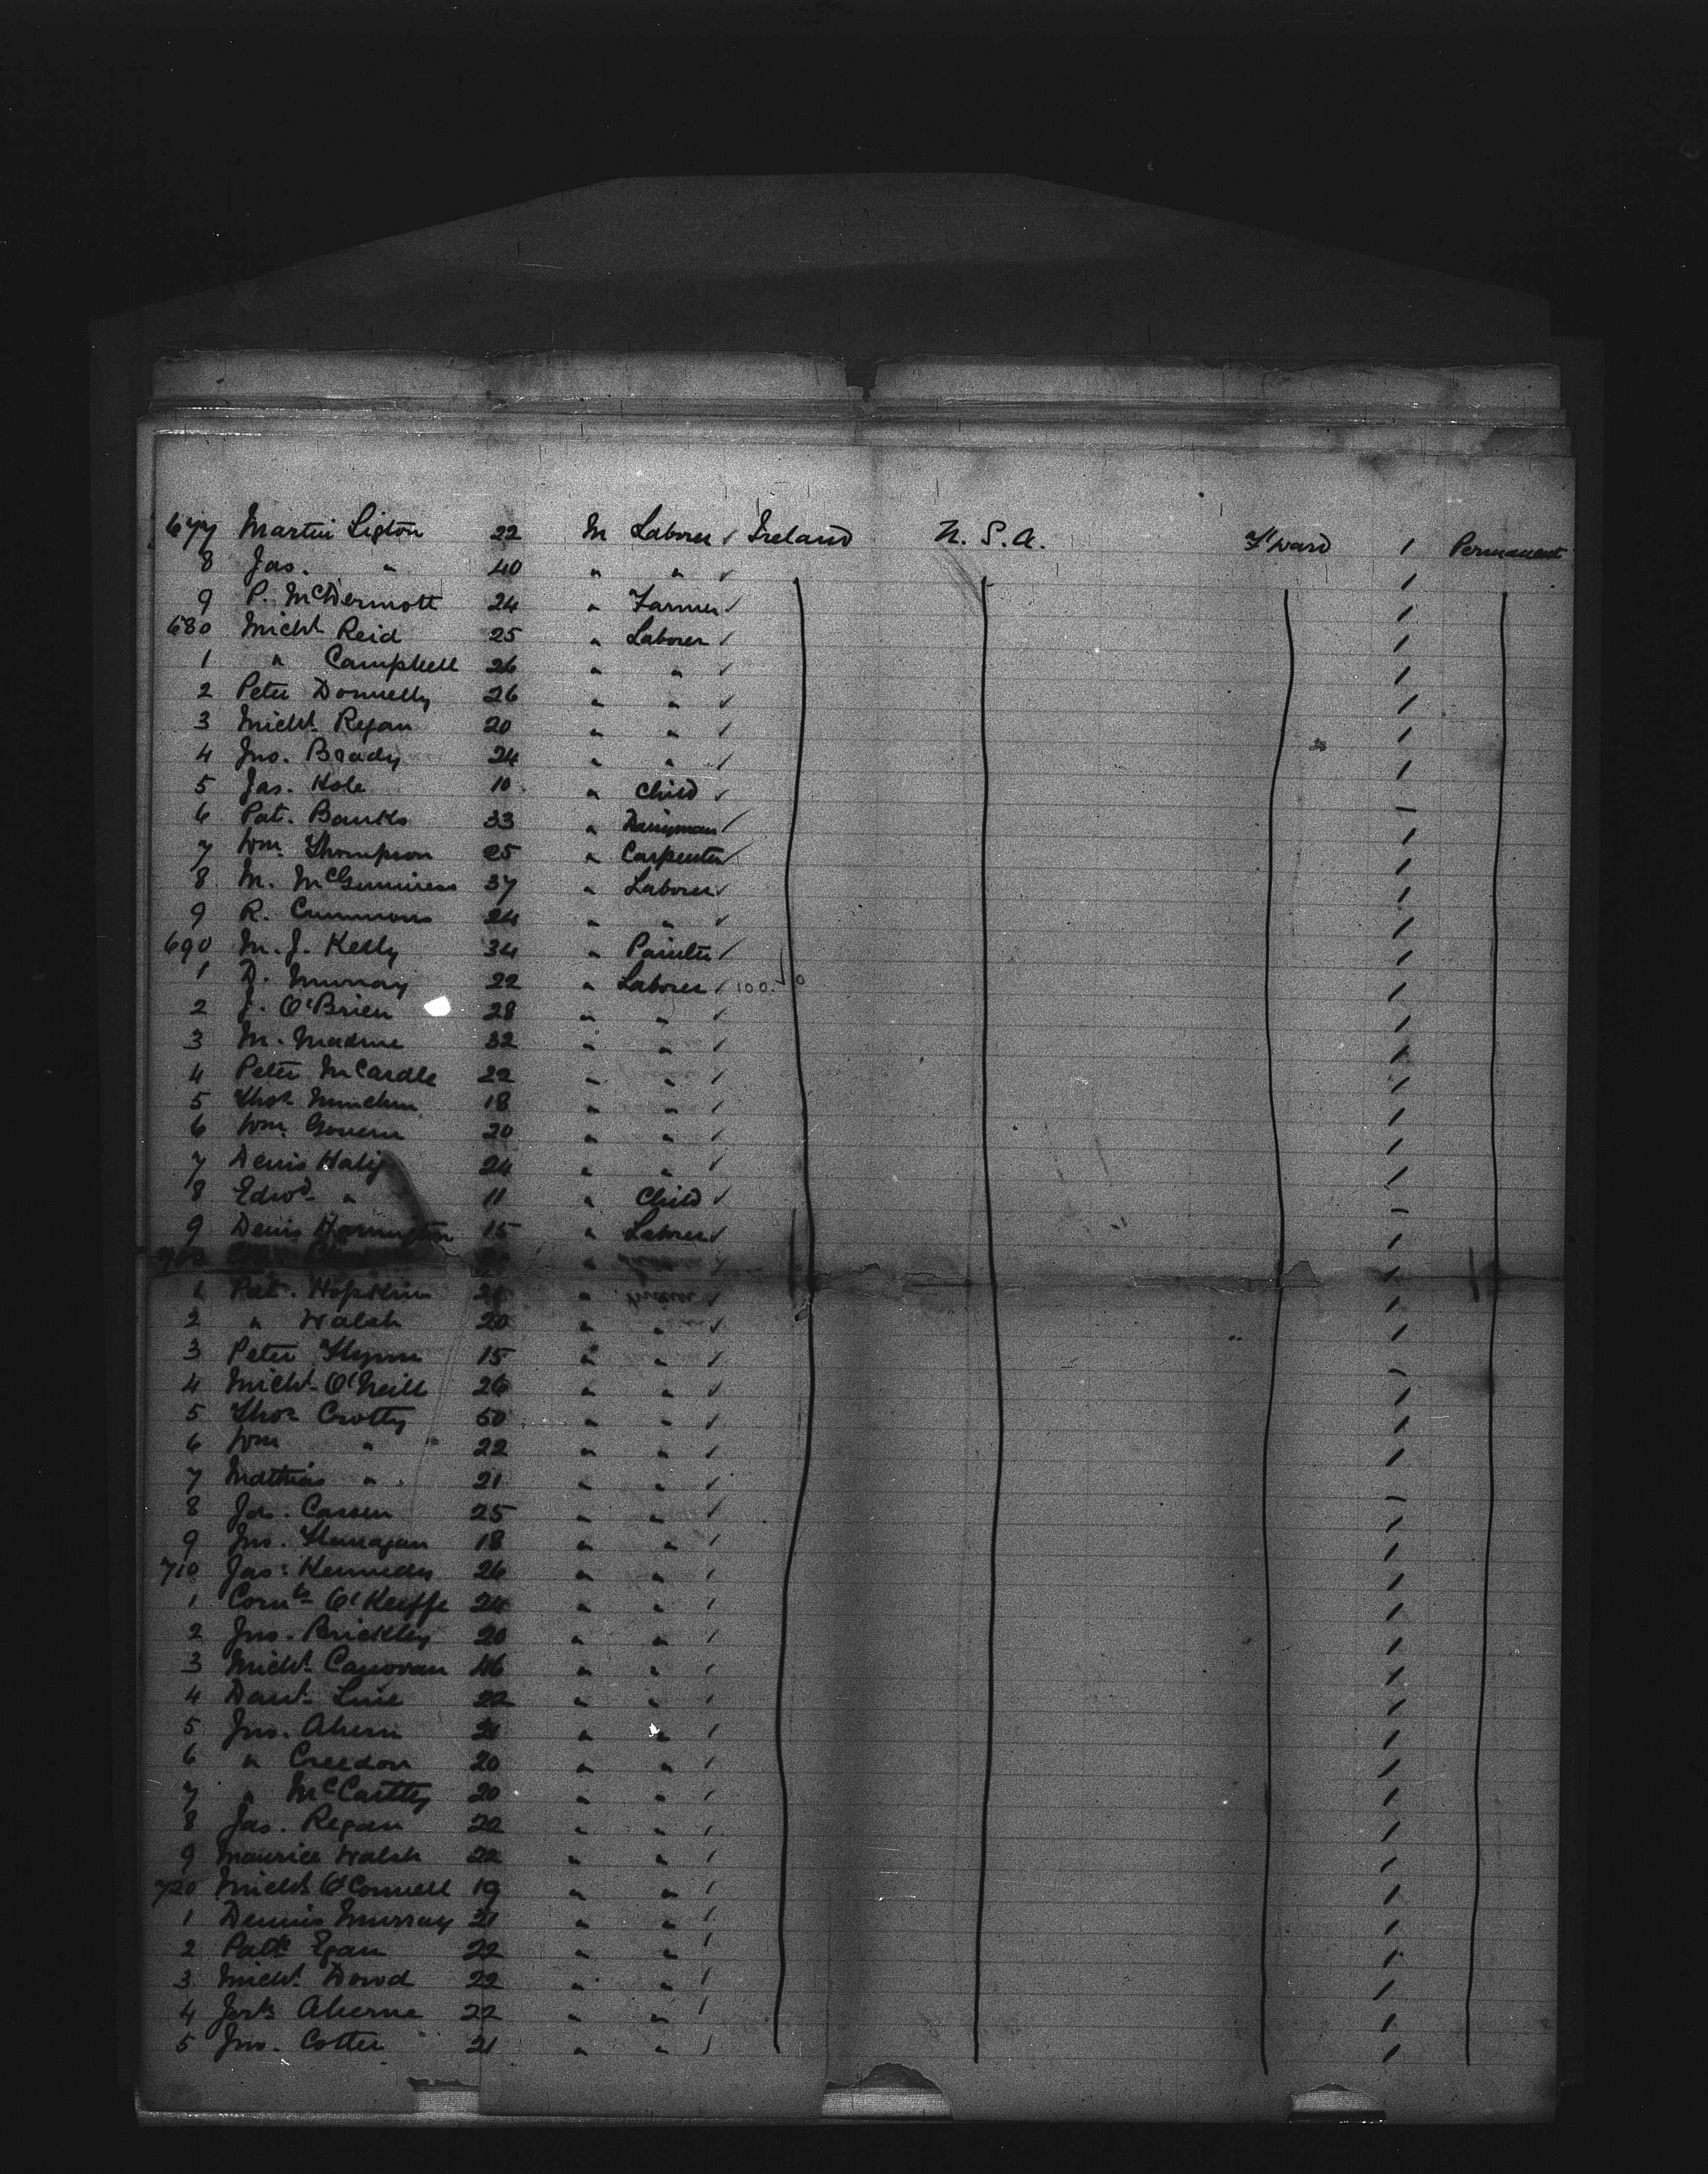 677 Martin Ligton 22 M Laborer ✓ Ireland U. S. A. F'ward 1 Permanent
8 Jas. " 40 " " ✓ /
9 P. McDermott 24 " Farmer ✓ /
680 Michl. Reid 25 " Laborer / /
1 " Campbell 26 " " / /
2 Peter Donnelly 26 " " ✓ /
3 Michl. Regan 20 " " / /
4 Jno. Brady 24 " " / /
5 Jas. Hole 10 " Child ✓ /
6 Pat. Banks 33 " Dairyman / –
7 Wm. Thompson 25 " Carpenter ✓ /
8 M. McGuinness 37 " Laborer ✓ /
9 R. Cummons 24 " " ✓ /
690 M. J. Kelly 34 " Painter / /
1 D. Murray 22 " Laborer / 100. /
2 J. O'Brien 28 " " / /
3 M. Madine 32 " " / /
4 Peter McArdle 22 " " / /
5 Thos. Minchin 18 " " / /
6 Wm. Govern 20 " " / /
7 Denis Haly 24 " " / /
8 Edwd. " 11 " Child ✓ –
9 Denis Harrington 15 " Laborer ✓ /
700 " /
1 Pat. Hopkins " ✓ /
2 " Walsh 20 " " ✓ /
3 Peter Flynn 15 " " / –
4 Michl. O'Neill 26 " " ✓ /
5 Thos. Crotty 50 " " ✓ /
6 Wm " 22 " " ✓ /
7 Mathias " 21 " " ✓ –
8 Jas. 25 " " / /
9 Jno. Flanagan 18 " " / /
710 Jas. Kennedy 26 " " / /
1 Corns. O'Keiffe 24 " " / /
2 Jno. Brickley 20 " " / /
3 Michl. Canovan 46 " " / /
4 Danl. Line 22 " " / /
5 Jno. Ahern 21 " " / /
6 " Creedon 20 " " / /
7 " McCartty 20 " " / /
8 Jas. Regan 22 " " / /
9 Maurice Walsh 22 " " / /
720 Michl. O'Connell 19 " " / /
1 Dennis Murray 21 " " / /
2 Patk Egan 22 " " / /
3 Michl. Dowd 22 " " / /
4 Jerh. Aherne 22 " " / /
5 Jno. Cotter 21 " " / /